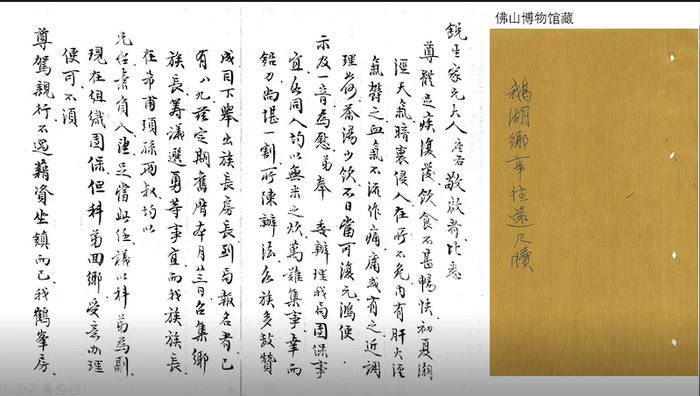 佛山博物馆藏
鵝湖鄉事往還尺牘
家元大人座右敬啟者比悉
尊體足疾復發飲食不甚暢快初夏潮
溼天氣暗裏侵入在所不免內有肝火溼
氣鬱之血氣不流作痛痛或有之近調
理荷茶湯少飲不日當可復元鴻便
示及一音為慰弟奉 委辦理我局團保事
宜各同人均以無米之炊萬難集事幸而
鉛刀尚堪一割所陳辦法各族多贊
成目下舉出族長房長到局報名者已
有八九茲定期舊曆本月廿三日召集鄉
族長籌議選勇等事宜而我族族長
在希甫頊蓀兩叔均以
兄台素負人望足當此任議以科弟為副
現在組織團保但科弟回鄉受意办理
便可不須
尊駕親行不過藉資坐鎮而已我鶴峯房